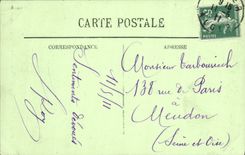 CARTE POSTALE
CORRESPONDANCE
ADRESSE
Sentiments dévoués
Monsieur Carbournech
138 rue de Paris
à
Meudon
(Seine et Oise)